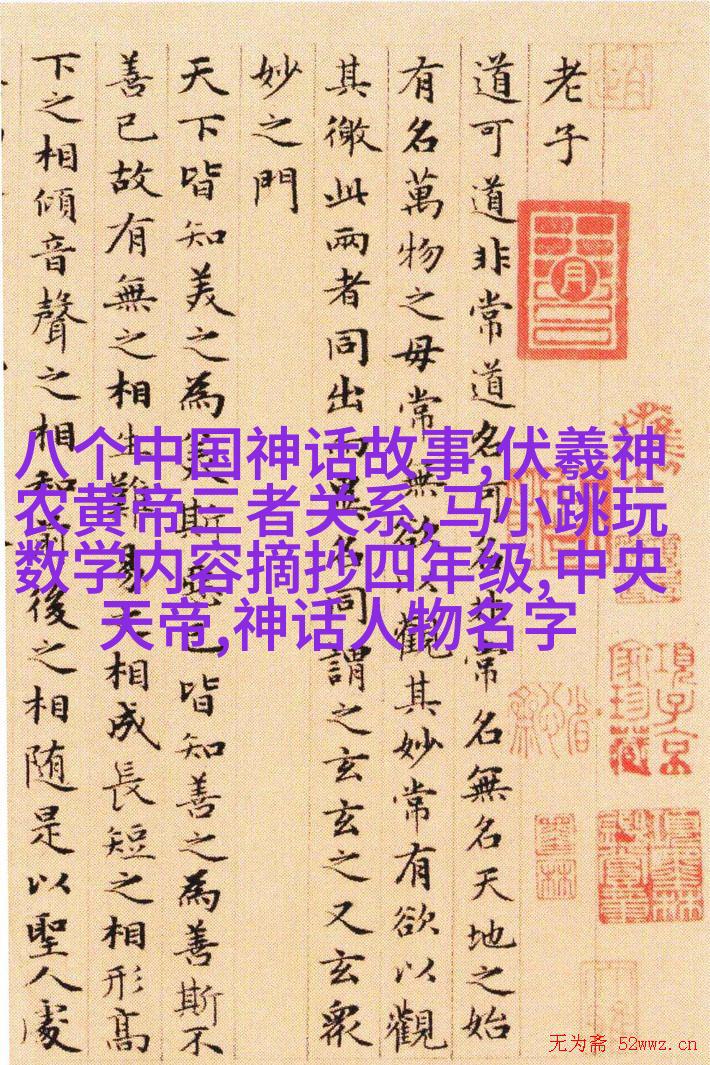 老子
道可道非常道名可名非常名無名天地之始
有名萬物之母常無欲以觀其妙常有欲以觀
其徼此兩者同出而異名同謂之玄玄之又玄衆
妙之門
天下皆知美之為美斯惡已皆知善之為善斯不
善已故有無之相生難易之相成長短之相形高
下之相傾音聲之相和前後之相随是以聖人處
八个中国神话故事,伏羲神
农黄帝三者关系,马小跳玩
数学内容摘抄四年级,中央
天帝,神话人物名字
項子京
家珍藏
无为斋 52wwz.cn